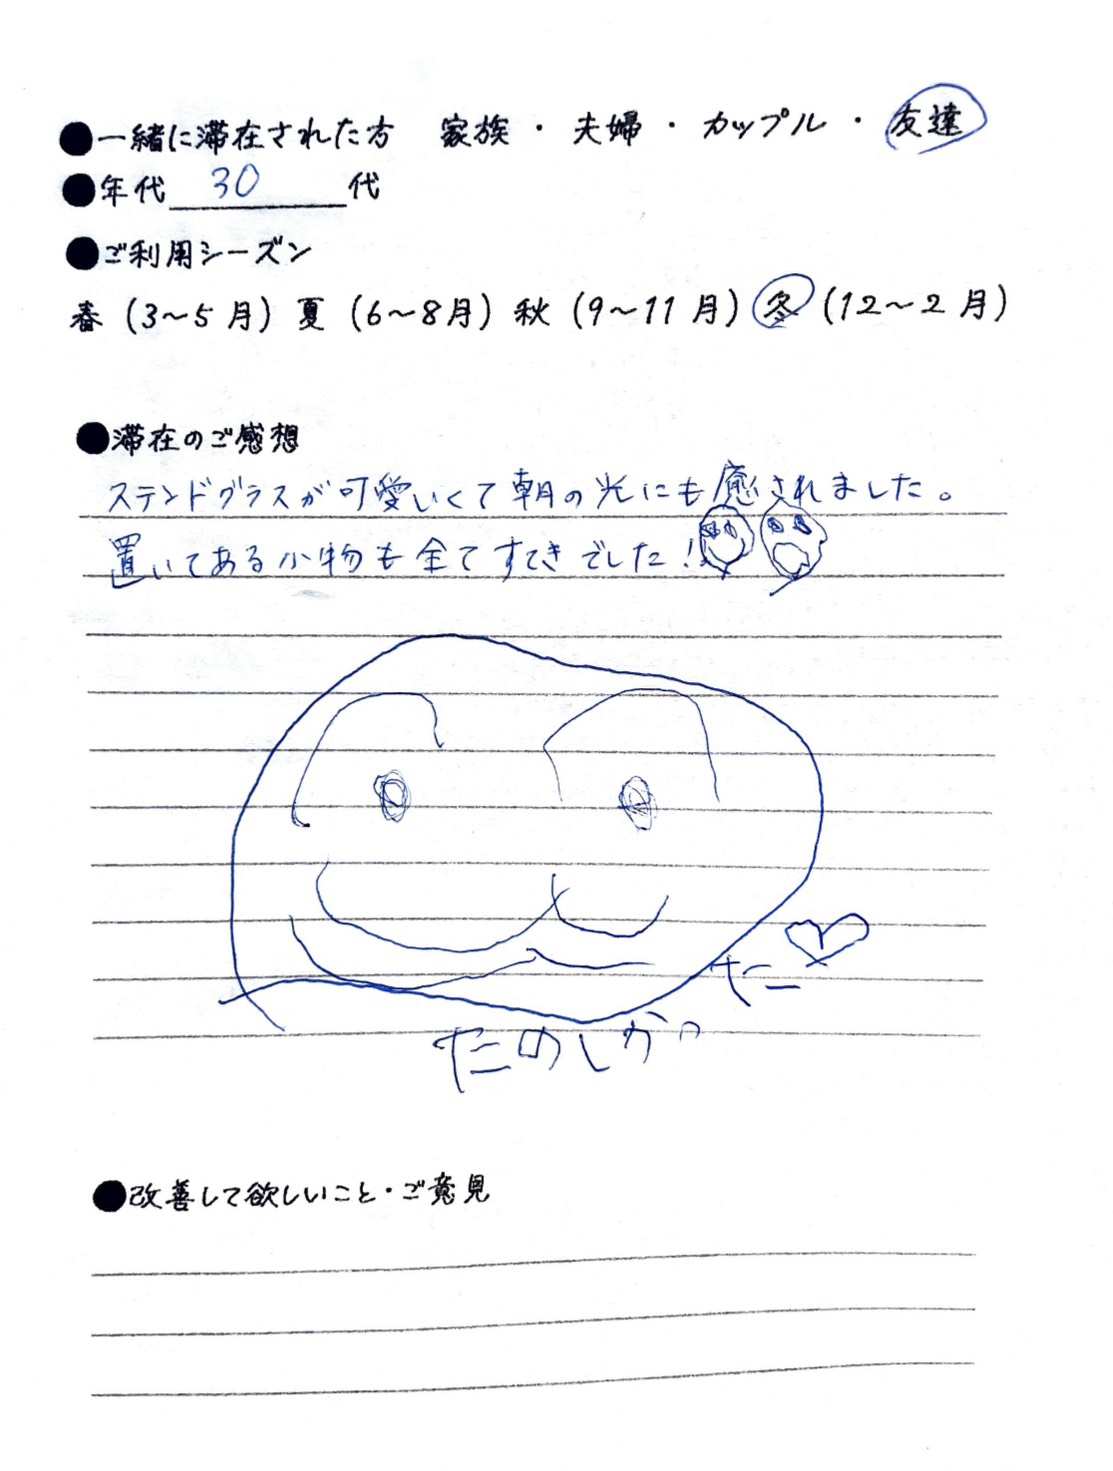 ●一緒に滞在された方 家族・夫婦・カップル・友達
●年代 30 代
●ご利用シーズン
春(3～5月)夏(6～8月)秋(9～11月)冬(12～2月)
●滞在のご感想
ステンドグラスが可愛いくて朝の光にも癒されました。
置いてある小物も全てすてきでした!
たのしかった
●改善して欲しいこと・ご意見